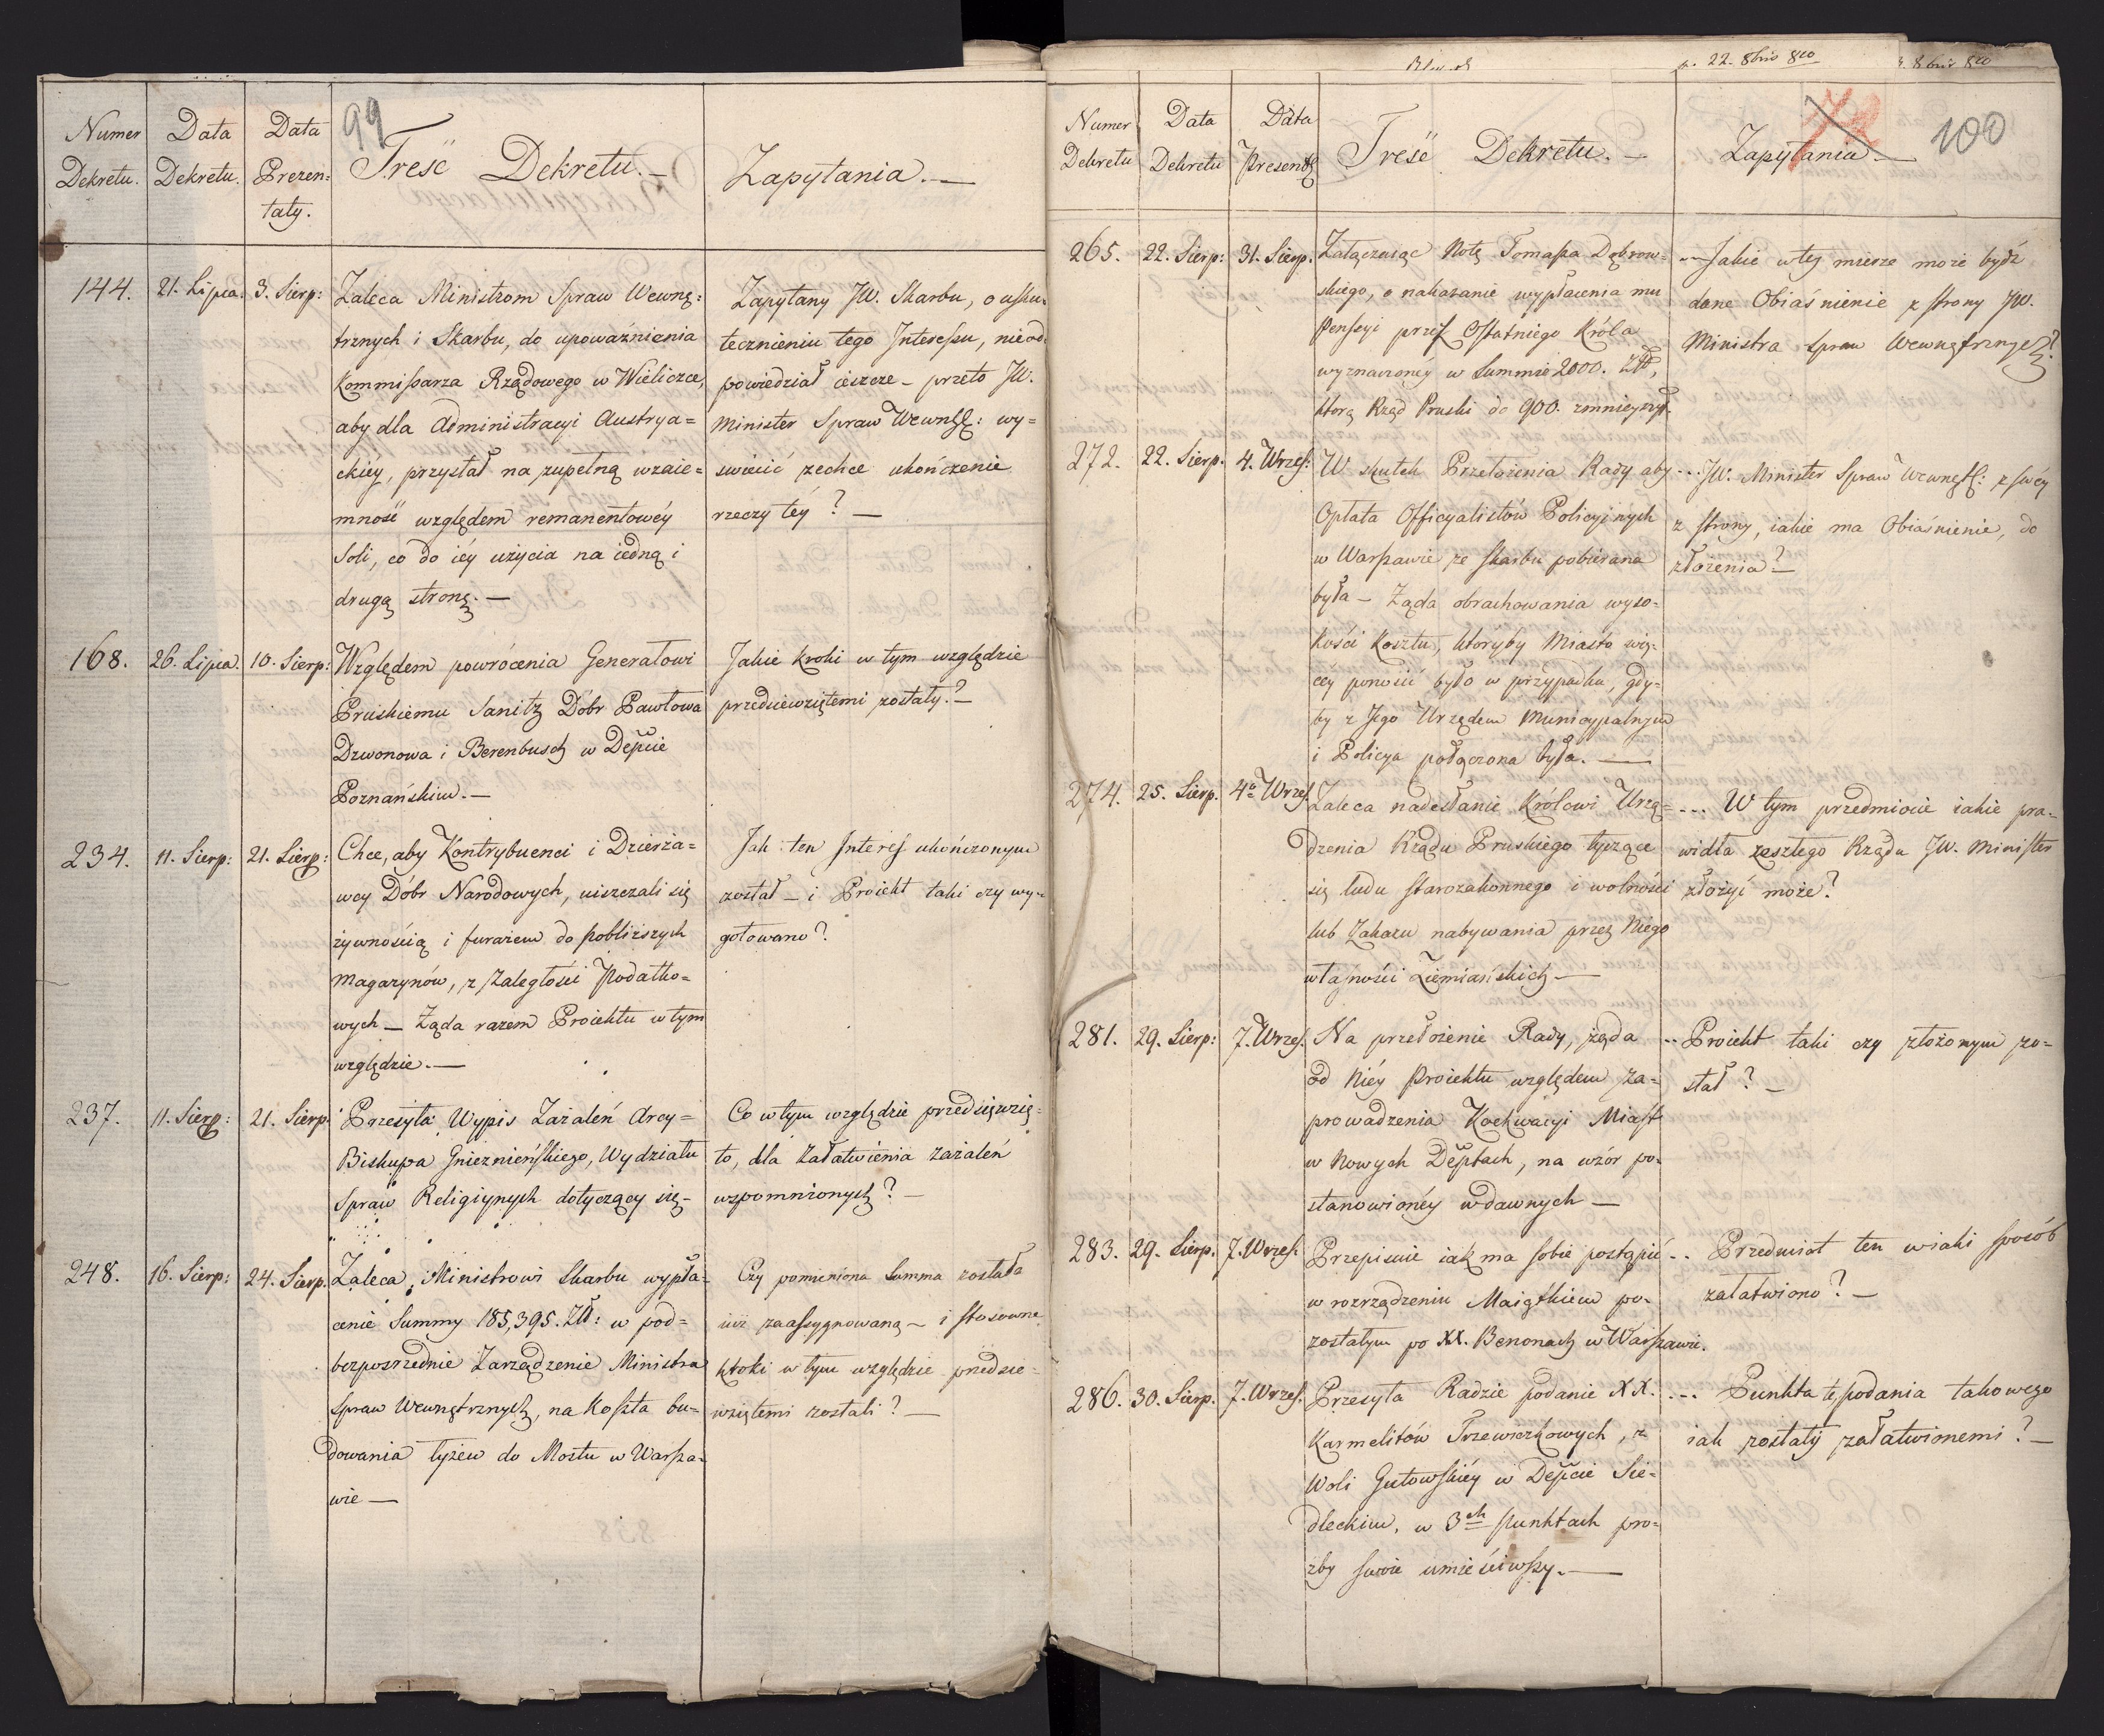 99
Numer Dekretu.
Data Dekretu.
Data Prezentaty.
Treść Dekretu. —
Zapytania. —
144. 21. Lipca. 3. Sierp:
Zaleca Ministrom Spraw Wewnę:
trznych i Skarbu, do upoważnienia
Kommissarza Rządowego w Wieliczce,
aby dla Administracyi Austrya=
ckiéy, przystał na zupełną wzaie=
mność względem remanentowéy
Soli, co do iéy użycia na iedną i
drugą stronę. —
Zapytany JW. Skarbu, o usku=
tecznieniu tego Interessu, nieod
powiedział ieszcze — przeto JW.
Minister Spraw Wewnętz: wy=
świecić zechce ukończenie
rzeczy téy? —
168. 26. Lipca. 10. Sierp:
Względem powrócenia Generałowi
Pruskiemu Sanitz Dóbr Pawłowa
Dzwonowa i Berenbusch w Depcie
Poznańskim. —
Jakie kroki w tym względzie
przedsiewziętemi zostały? —
234. 11. Sierp: 21. Sierp:
Chce, aby Kontrybuenci i Dzierża=
wcy Dóbr Narodowych, uiszczali się
żywnością i furażem do pobliższych
Magazynów, z Zaległości Podatko=
wych — Żąda razem Proiektu w tym
względzie. —
Jak ten Interes ukończonym
został — i Proiekt taki czy wy=
gotowano?
237. 11. Sierp: 21. Sierp:
Przesyła Wypis Zażaleń Arcy=
Biskupa Gnieznieńskiego, Wydziału
Spraw Religiynych dotyczący się —
Co w tym względzie przedsięwzię=
to, dla Załatwienia zażaleń
wspomnionych? —
248. 16. Sierp: 24. Sierp.
Zaleca, Ministrowi Skarbu wypła=
cenie Summy 185,395. Zł: w pod=
bezpośrzednie Zarządzenie Ministra
Spraw Wewnętrznych, na Koszta bu=
dowania łyżew do Mostu w Warsza=
wie —
Czy pomieniona Summa została
iuż zaassygnowaną — i stosowne
kroki w tym względzie przedsie=
wziętemi zostali? —
22. 8bris 810
8bris 810
72
100
Numer Dekretu
Data Dekretu
Data Presenty
Treść Dekretu. —
Zapytania —
265. 22. Sierp: 31. Sierp.
Załączaiąc Notę Tomasza Dąbrow=
skiego, o nakazanie wypłacenia mu
Pensyi przez Ostatniego Króla
wyznaczonéy w Summie 2000. Zł,
którą Rząd Pruski do 900. zmnieyszył.
— Jakie w téy mierze może bydź
dane Obiaśnienie z strony JW.
Ministra Spraw Wewnętrznych?
272. 22. Sierp. 4. Wrześ:
W skutek Przełożenia Rady aby
Opłata Officyalistów Policyinych
w Warszawie ze skarbu pobierana
była — Żąda obrachowania wyso=
kości Kosztu, któryby Miasto wię=
céy ponosić było w przypadku, gdy=
by z Jego Urzędem Municypalnym
i Policya połączona była. —
... JW. Minister Spraw Wewnętz: z swéy
z strony, iakie ma Obiaśnienie, do
złożenia? —
274. 25. Sierp. 4o Wrześ.
Zaleca nadesłanie Królowi Urzą=
dzenia Rządu Pruskiego tyczące
się ludu starozakonnego i wolności
lub Zakazu nabywania przez Niego
własności Ziemiańskich —
... W tym przedmiocie iakie pra=
widła zeszłego Rządu JW. Minister
złożyć może?
281. 29. Sierp: 7. Wrześ.
Na przełożenie Rady, żąda
od Niéy Proiektu względem Za=
prowadzenia Koekwacyi Miast
w Nowych Deptach, na wzór po=
stanowionéy w dawnych —
.. Proiekt taki czy złożonym zo=
stał? —
283. 29. Sierp. 7. Wrześ.
Przepisuie iak ma sobie postąpić
w rozrządzeniu Maiątkiem po=
zostałym po XX. Benonach w Warszawie.
.. Przedmiot ten w iaki sposób
załatwiono? —
286. 30. Sierp. 7. Wrześ.
Przesyła Radzie podanie XX.
Karmelitów Trzewiczkowych, z
Woli Gutowskiéy w Depcie Sie=
dleckim, w 3ch punktach pro=
źby swoie umieściwszy. —
... Punkta te, podania takowego
iak zostały załatwionemi? —